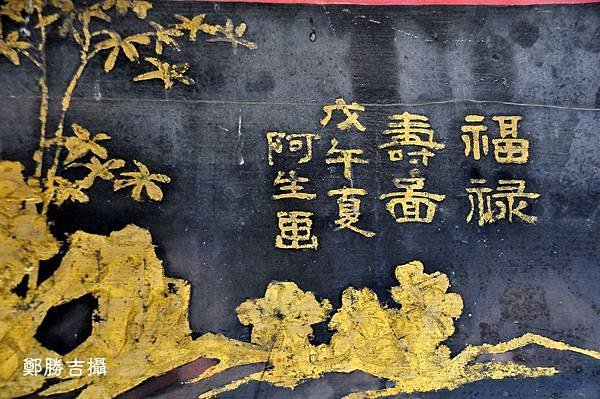 福祿
壽啚
戊午夏
阿生畫
鄭勝吉攝